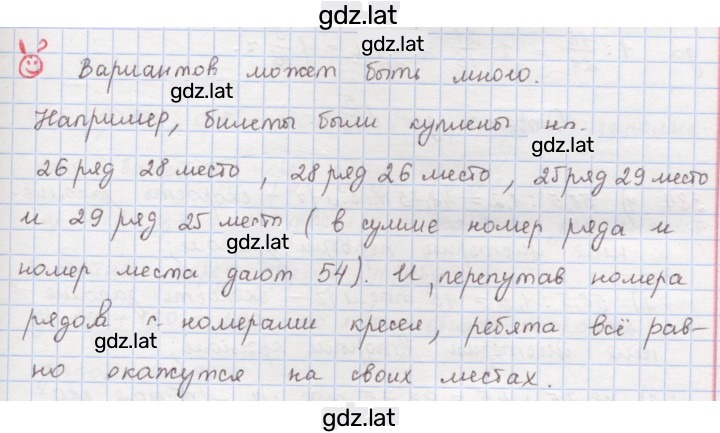 gdz.lat
gdz.lat
Вариантов может быть много.
gdz.lat
Например, билеты были куплены на
gdz.lat
26 ряд 28 место, 28 ряд 26 место, 25 ряд 29 место
и 29 ряд 25 место (в сумме номер ряда и
gdz.lat
номер места дают 54). И, перепутав номера
рядов с номерами кресел, ребята всё рав-
gdz.lat
но окажутся на своих местах.
gdz.lat